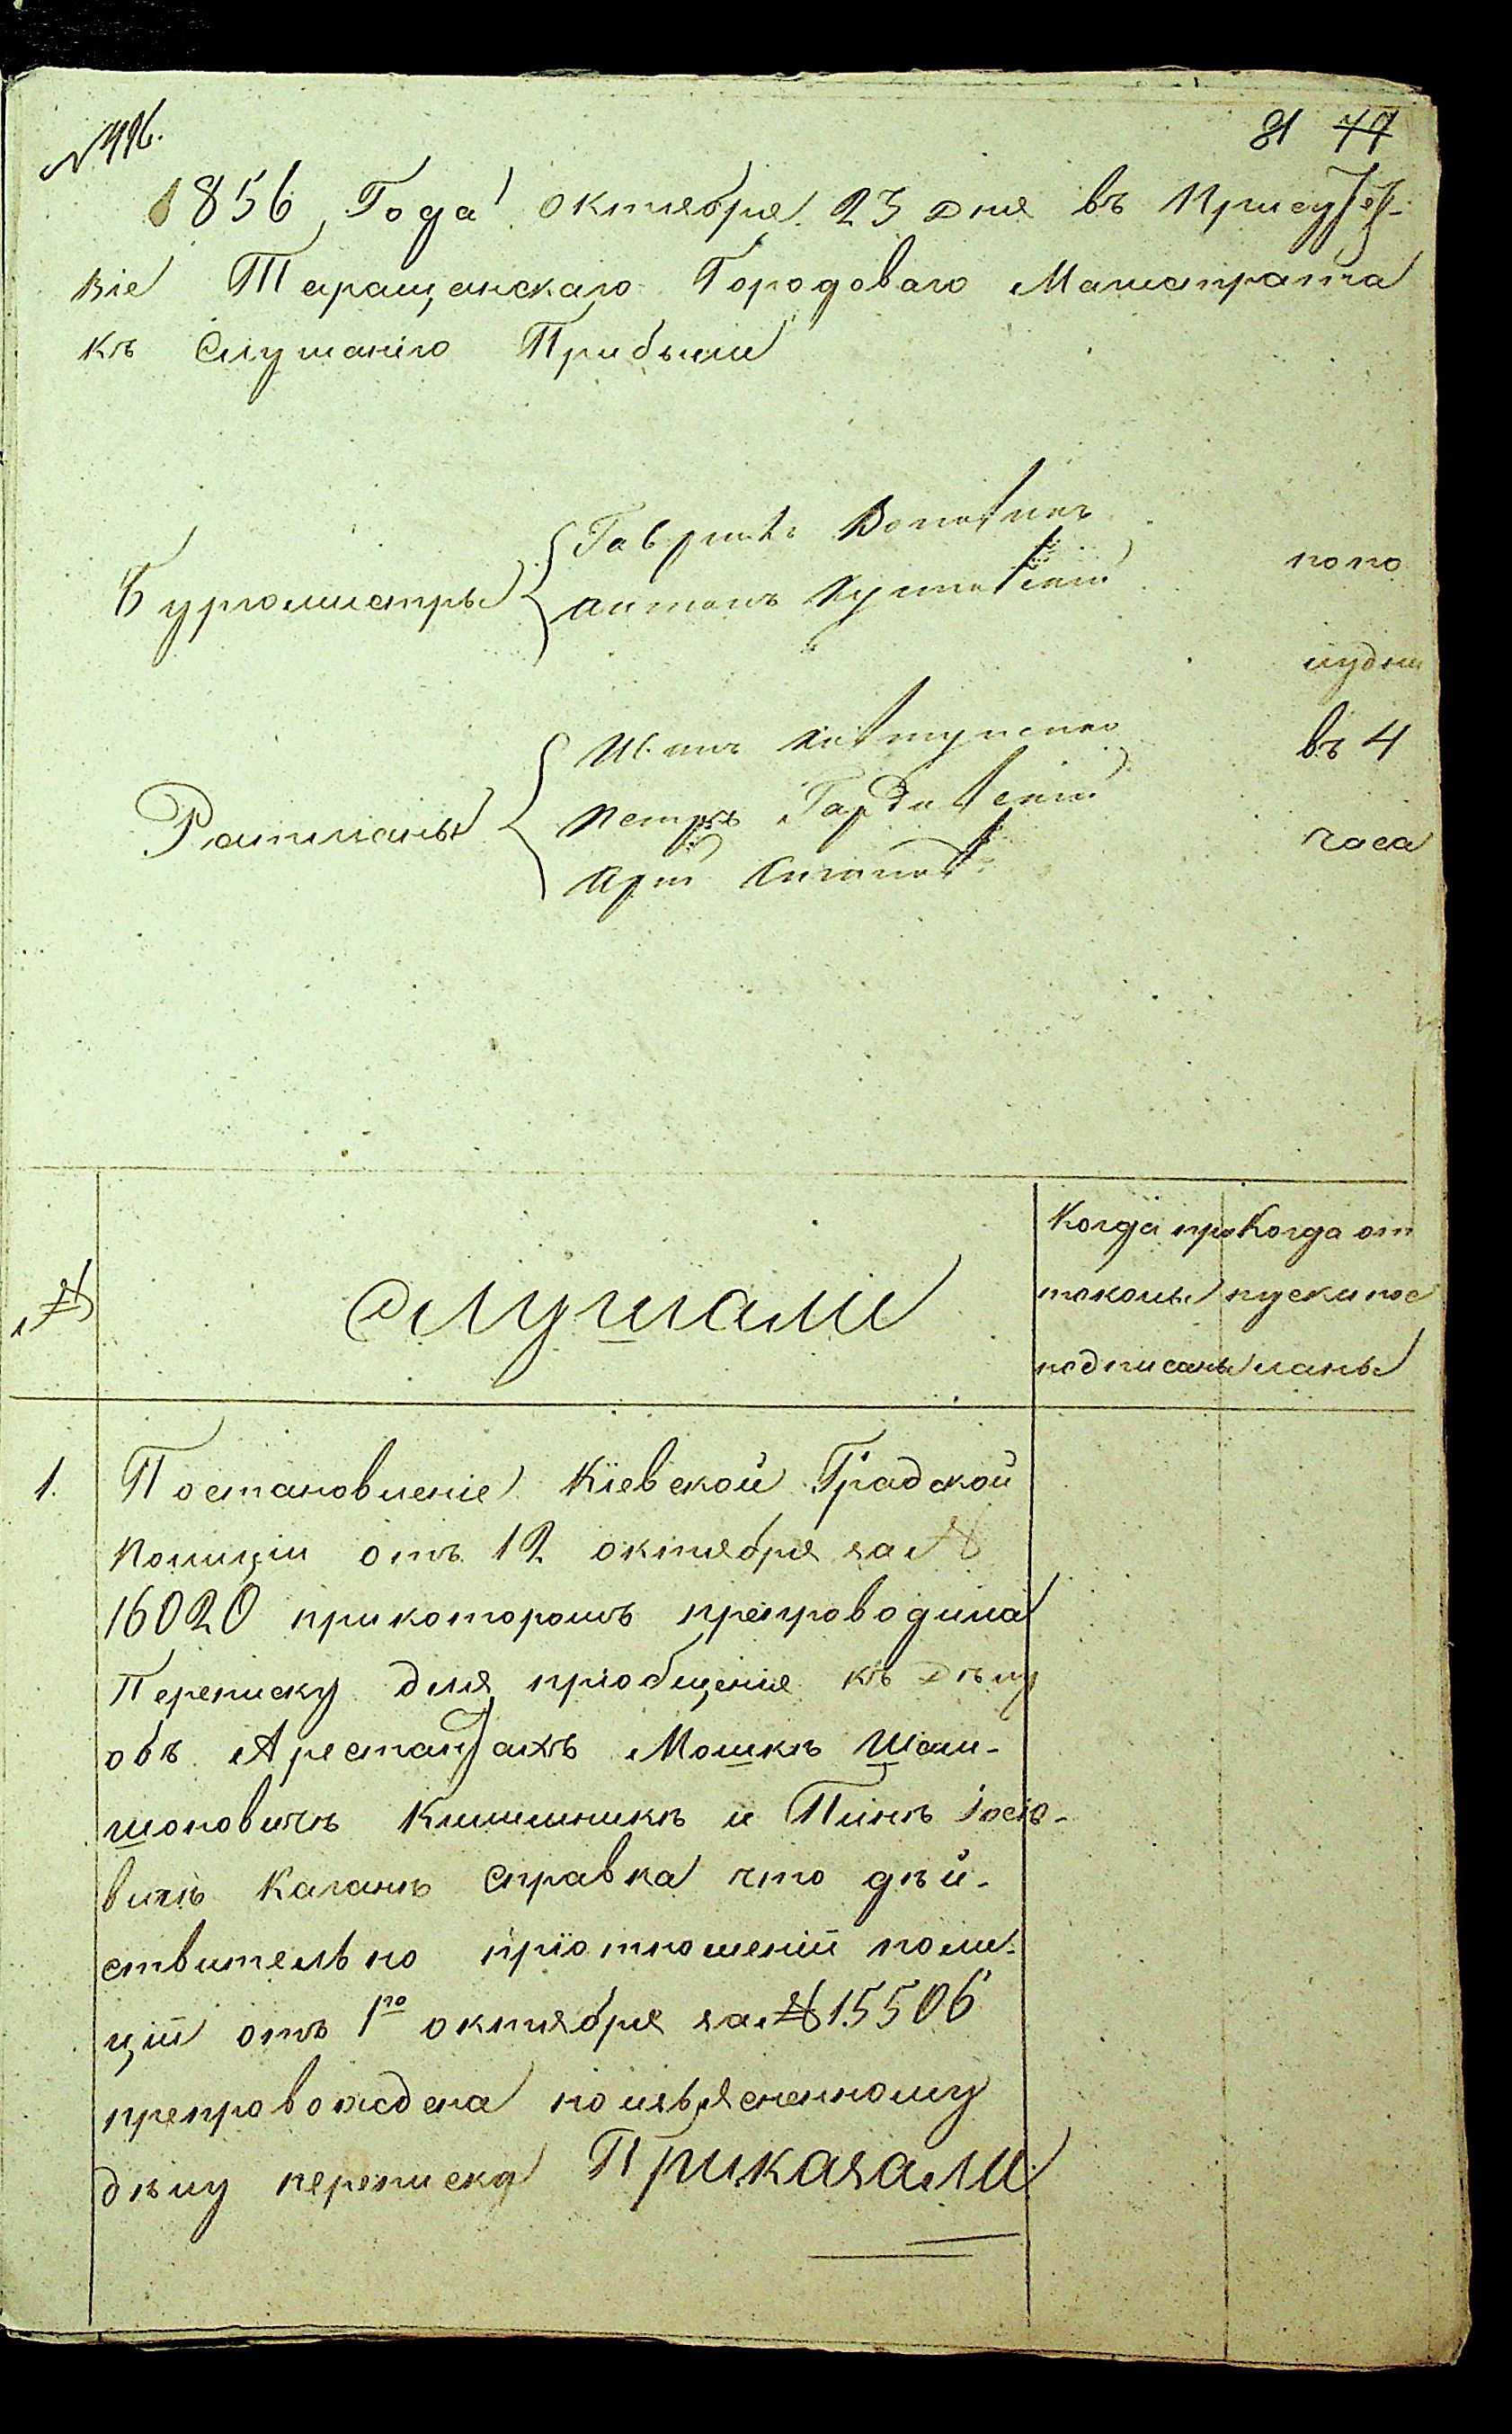 № 496.
81 77
1856 Года октября 23 дня въ Присутст-
віе Таращанскаго Городоваго Магистрата
къ Слушанію Прибыли
Бургомистры
Гаврилъ
Антонъ
попо
лудни
въ 4
часа
Ратманы
Иванъ
Петръ
№
Слушали
Когда про
токолы
подписаны
Когда от
пуски пос
ланы
1.
Постановленіе Кіевской Градской
Полиціи отъ 12 октября за №
16020 прикоторомъ препроводила
Переписку для пріобщенія къ дѣлу
объ Арестантахъ Мошкѣ Шам-
шоновичѣ Клишникѣ и Пинѣ Іосіо-
вичѣ Каганѣ Справка что дѣй-
ствительно пріотношеніи поли-
ціи отъ 1го октября за № 15506
препровождена поизъясненному
дѣлу переписка Приказали